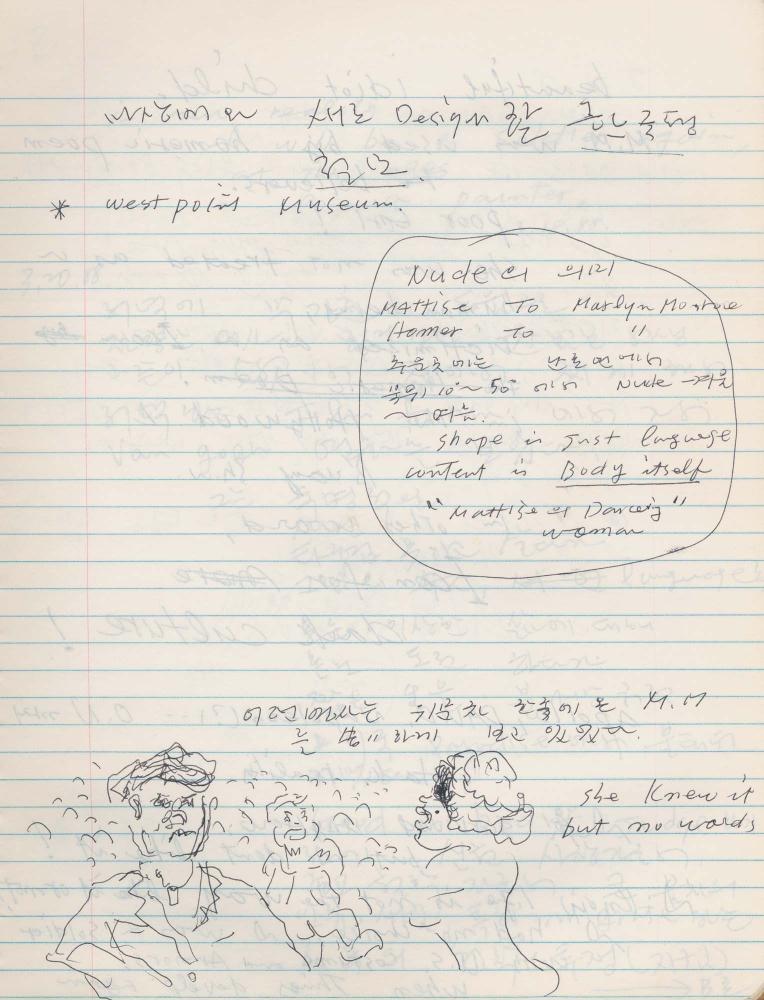 새로 Design 할 훈련복장
철모.
* west point Museum.
Nude의 의미
MATTISE TO Marlyn Monroe
Homer TO "
추운곳에는 난로연에서
북위 10°~50° 에서 Nude 겨울
~ 여름.
shape is Just language
content is Body itself
"Mattise의 Dancing"
woman
어떤 병사는 위문차 한국에 온 M.M
를 하게 보고 있었다.
she knew it
but no words